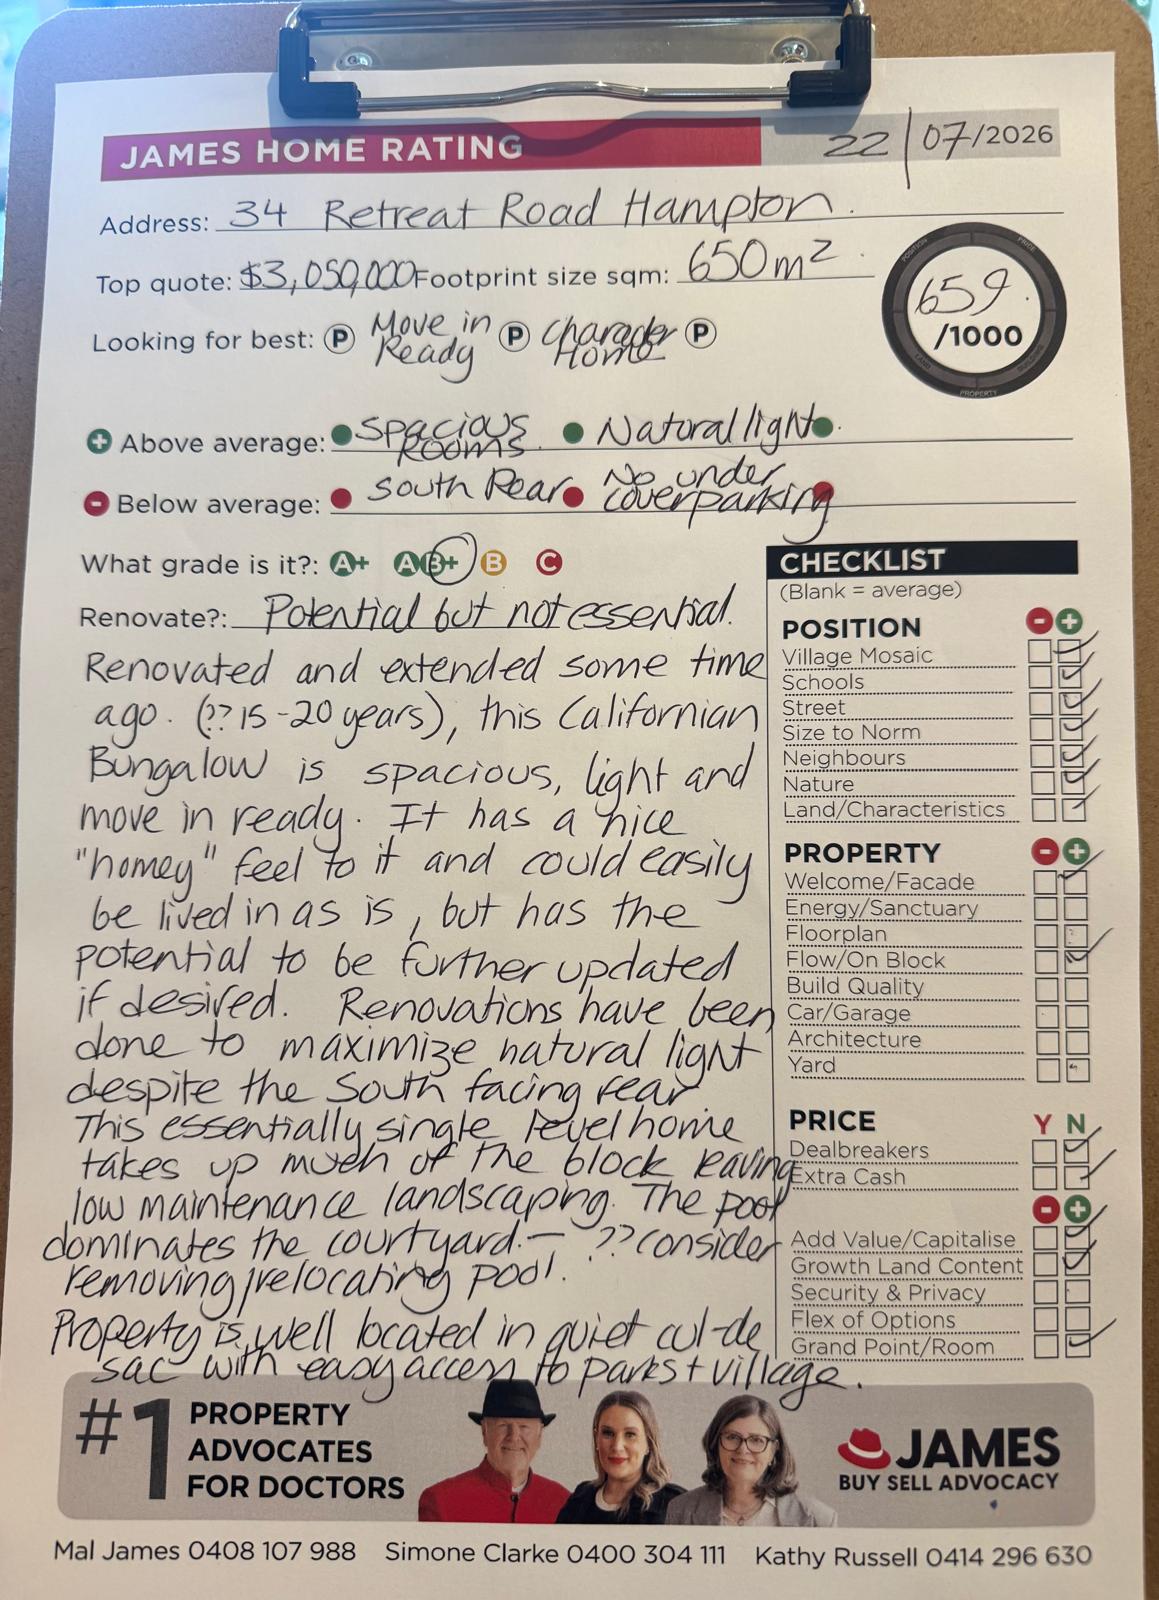 JAMES HOME RATING 22/07/2026
Address: 34 Retreat Road Hampton.
Top quote: $3,050,000 Footprint size sqm: 650m².
POSITION PRICE LAND BUILDING PROPERTY
659. /1000
Looking for best: P Move in Ready P Character Home P
+ Above average: Spacious Rooms. Natural light.
- Below average: South Rear No under cover parking
What grade is it?: A+ A B+ B C
Renovate?: Potential but not essential.
Renovated and extended some time
ago. (?? 15-20 years), this Californian
Bungalow is spacious, light and
move in ready. It has a nice
"homey" feel to it and could easily
be lived in as is, but has the
potential to be further updated
if desired. Renovations have been
done to maximize natural light
despite the South facing rear
This essentially single level home
takes up much of the block leaving
low maintenance landscaping. The pool
dominates the courtyard. – ?? consider
removing/relocating pool.
Property is well located in quiet cul-de
sac with easy access to parks + village.
CHECKLIST
(Blank = average)
POSITION - +
Village Mosaic
Schools
Street
Size to Norm
Neighbours
Nature
Land/Characteristics
PROPERTY - +
Welcome/Facade
Energy/Sanctuary
Floorplan
Flow/On Block
Build Quality
Car/Garage
Architecture
Yard
PRICE Y N
Dealbreakers
Extra Cash
- +
Add Value/Capitalise
Growth Land Content
Security & Privacy
Flex of Options
Grand Point/Room
#1 PROPERTY
ADVOCATES
FOR DOCTORS
JAMES
BUY SELL ADVOCACY
Mal James 0408 107 988 Simone Clarke 0400 304 111 Kathy Russell 0414 296 630